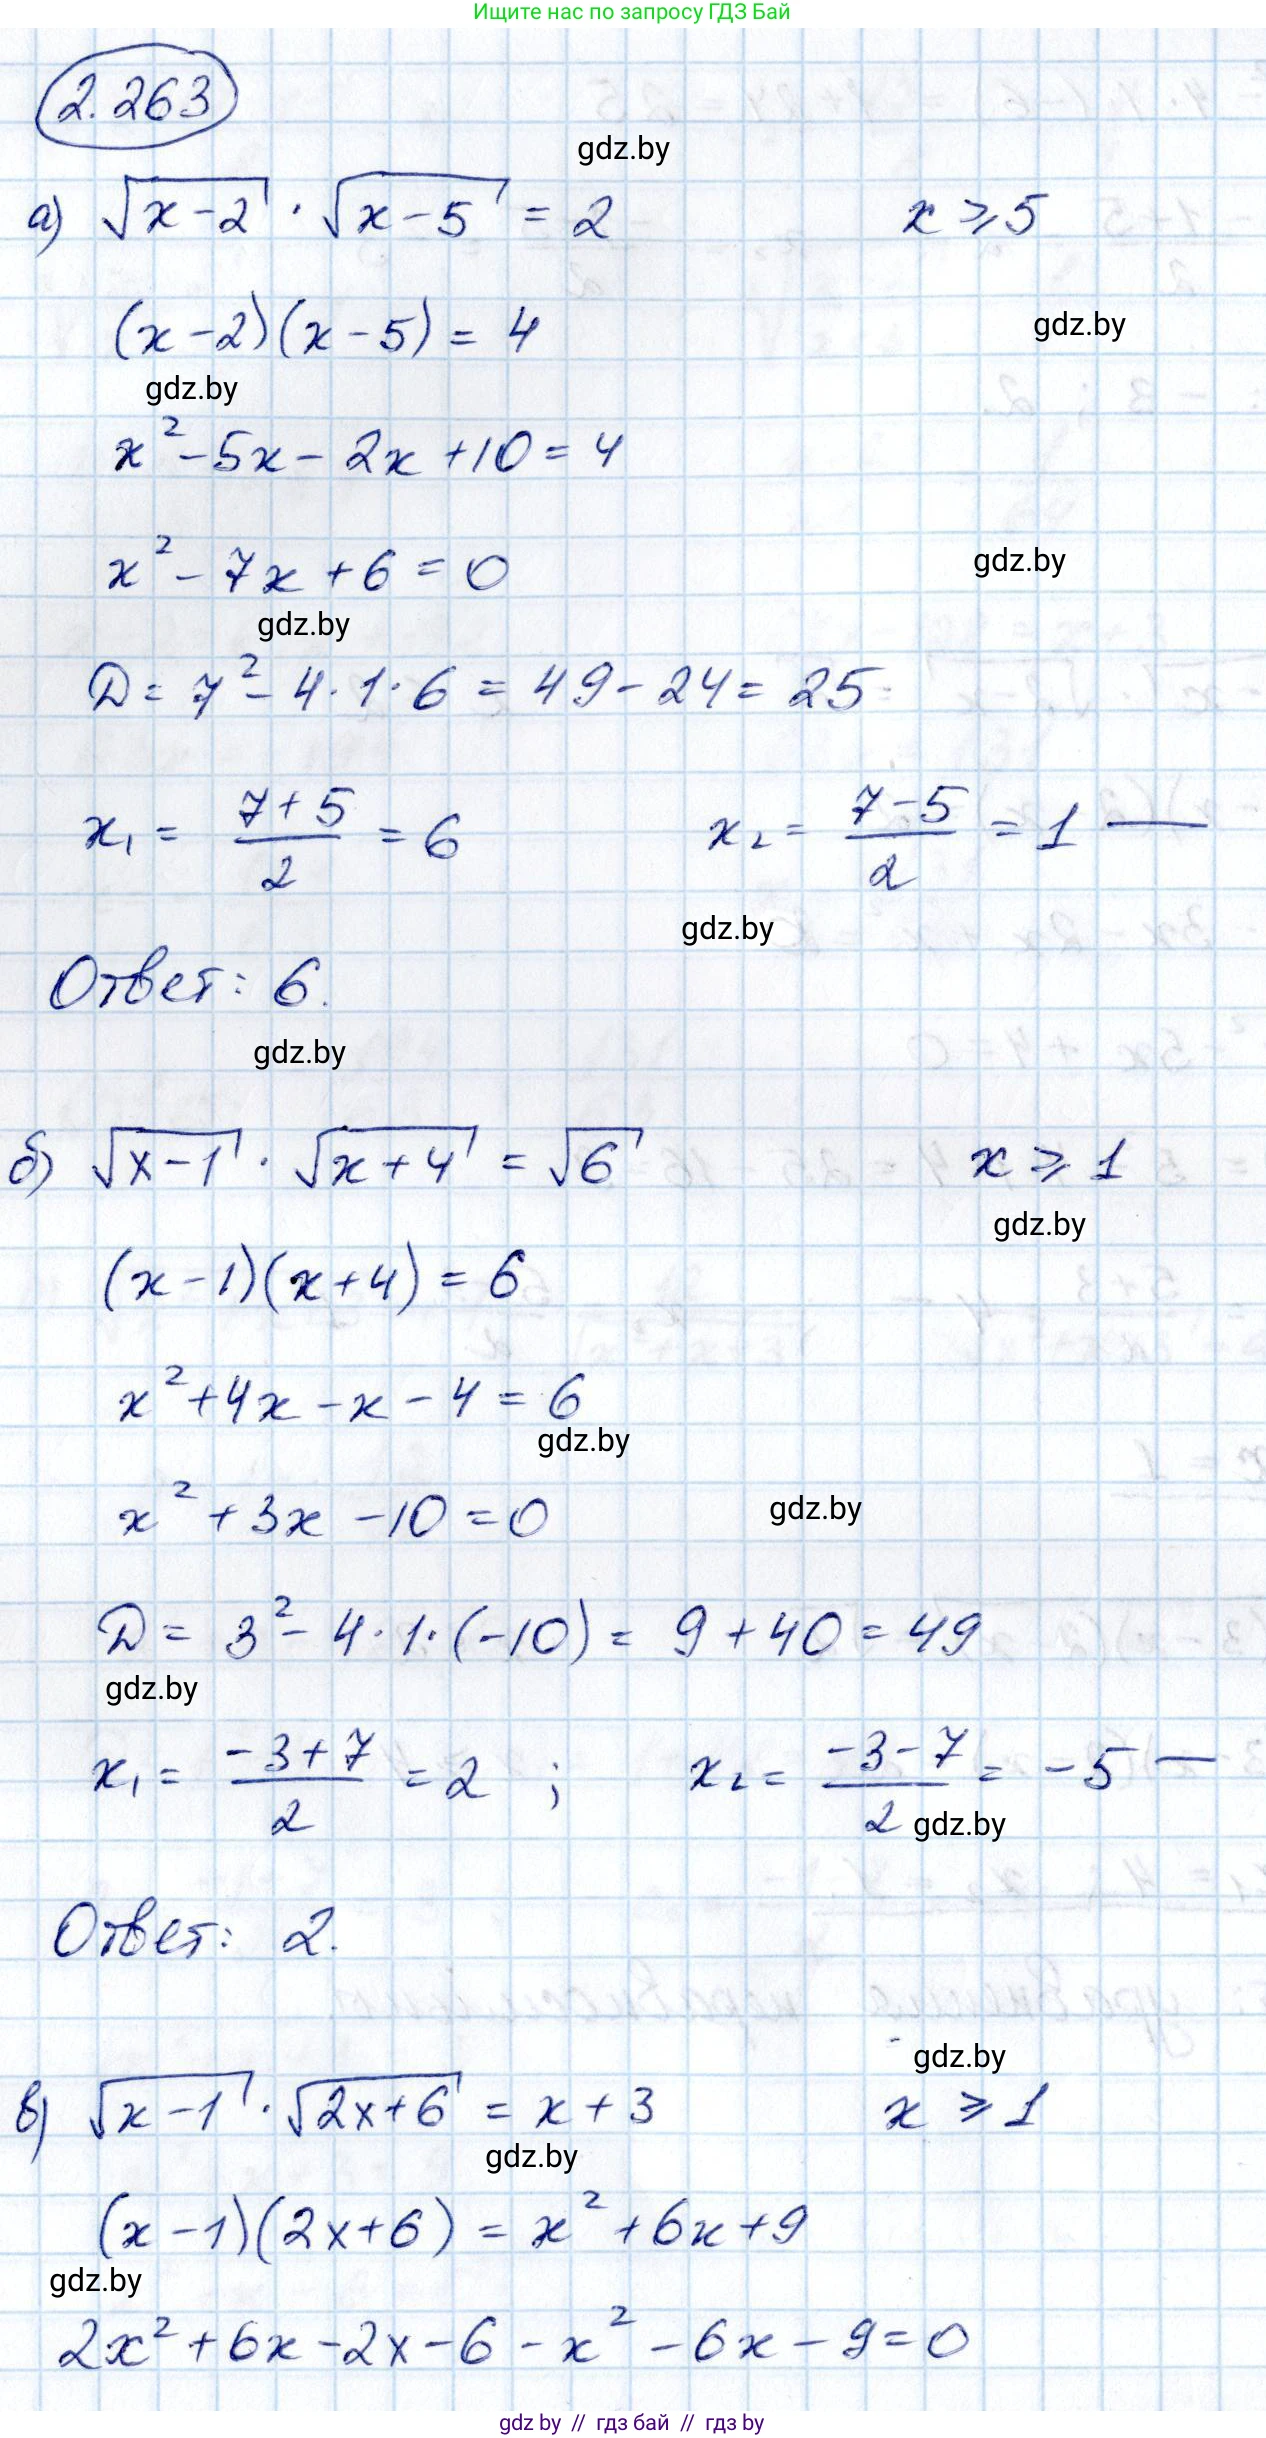 Ищите нас по запросу ГДЗ Бай
2.263
gdz.by
а) √(x-2) · √(x-5) = 2    x ⩾ 5
(x-2)(x-5) = 4
gdz.by
gdz.by
x² - 5x - 2x + 10 = 4
x² - 7x + 6 = 0
gdz.by
gdz.by
D = 7² - 4·1·6 = 49 - 24 = 25
x₁ = (7+5)/2 = 6    x₂ = (7-5)/2 = 1 —
gdz.by
Ответ: 6.
gdz.by
б) √(x-1) · √(x+4) = √6    x ⩾ 1
gdz.by
(x-1)(x+4) = 6
x² + 4x - x - 4 = 6
gdz.by
x² + 3x - 10 = 0
gdz.by
D = 3² - 4·1·(-10) = 9 + 40 = 49
gdz.by
x₁ = (-3+7)/2 = 2 ;    x₂ = (-3-7)/2 = -5 —
gdz.by
Ответ: 2.
gdz.by
в) √(x-1) · √(2x+6) = x + 3    x ⩾ 1
gdz.by
(x-1)(2x+6) = x² + 6x + 9
gdz.by
2x² + 6x - 2x - 6 - x² - 6x - 9 = 0
gdz by // гдз бай // гдз by